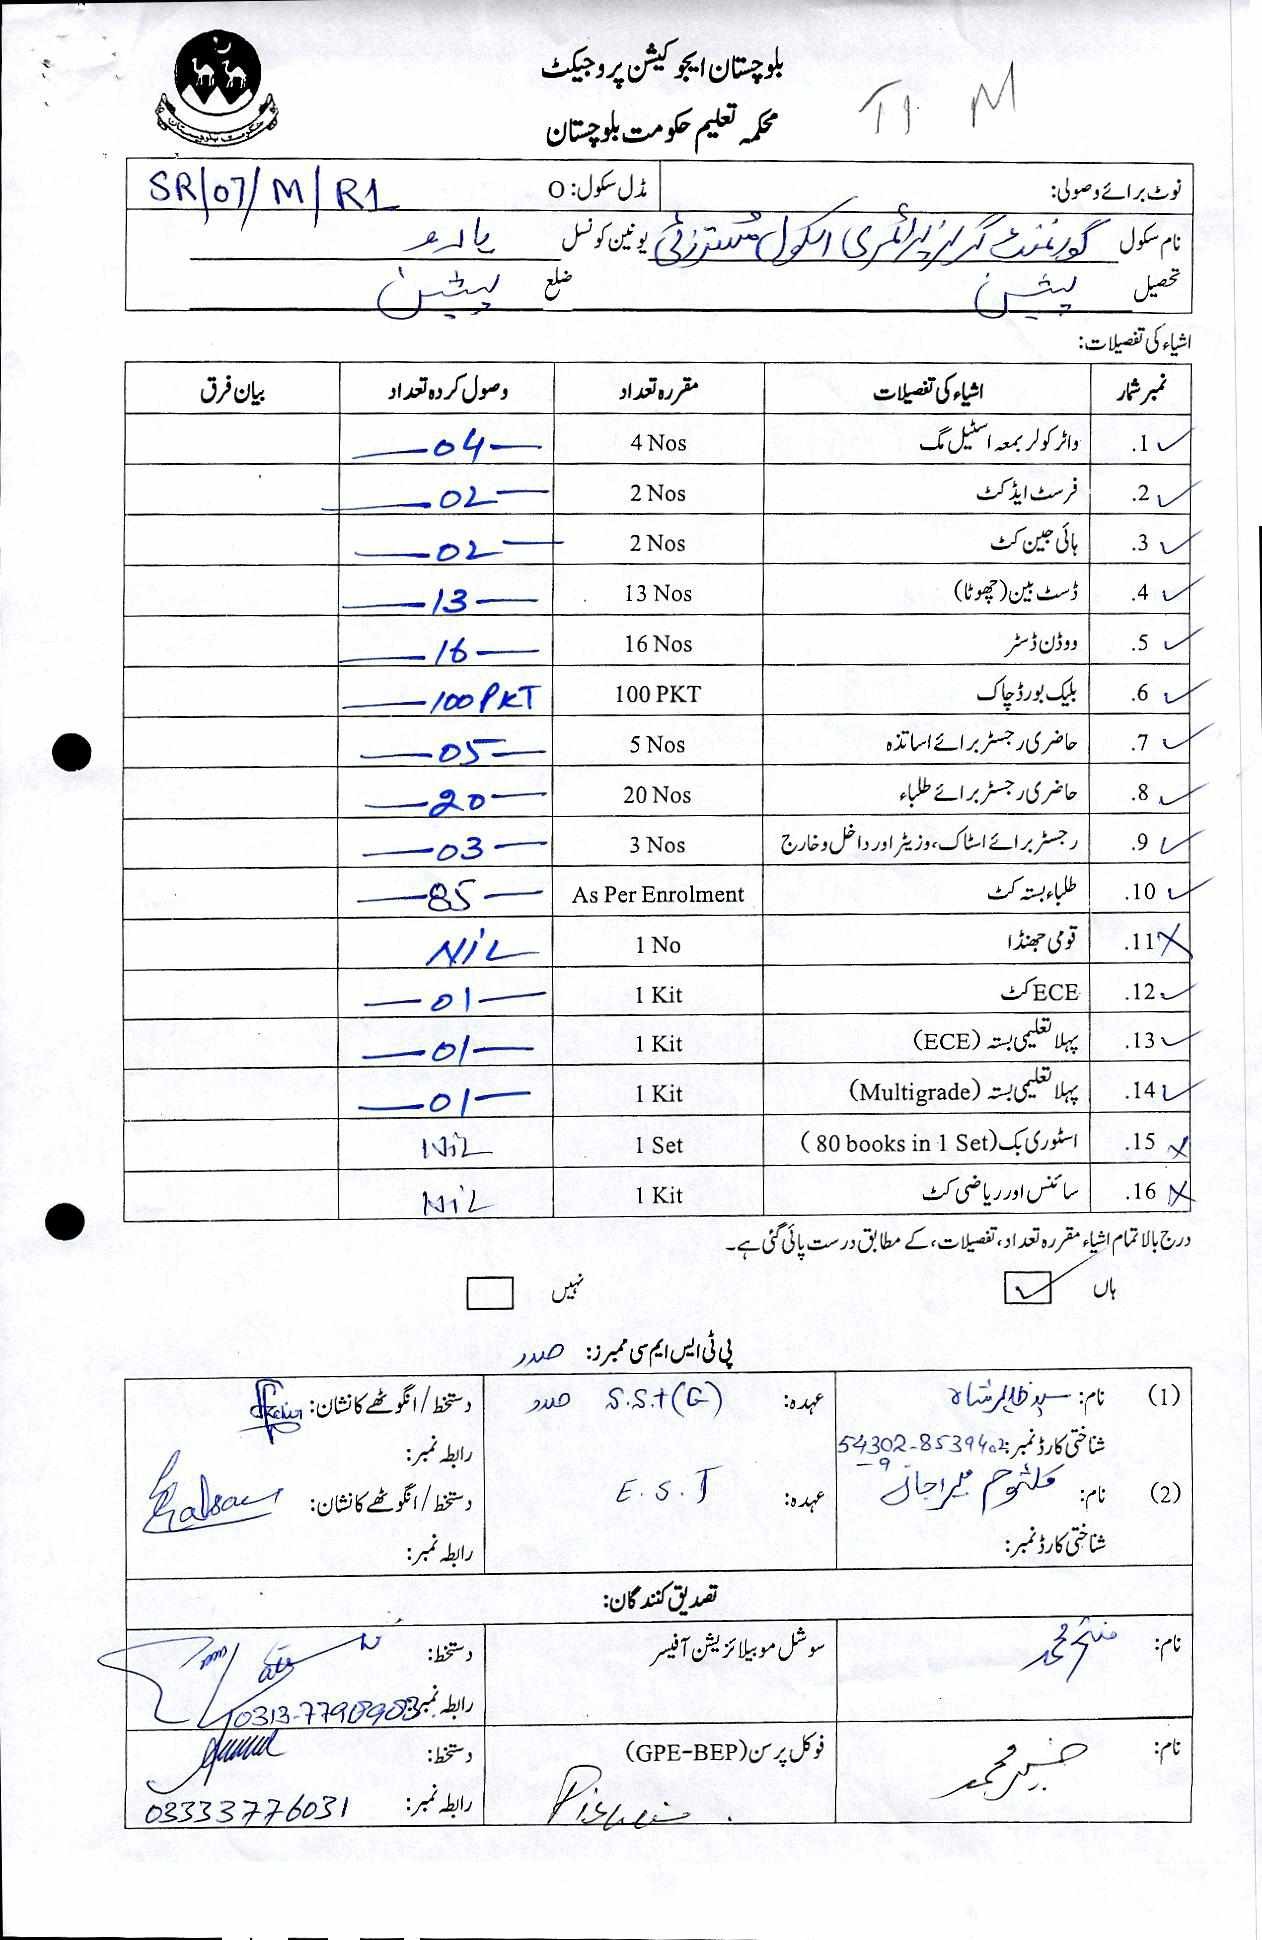 بلوچستان ایجوکیشن پروجیکٹ
T1 M
محکمہ تعلیم حکومت بلوچستان
حکومت بلوچستان
نوٹ برائے وصولی: مڈل سکول: O SR/07/M/R1
نام سکول گورنمنٹ گرلز پرائمری اسکول مستزئی یونین کونسل یارو
تحصیل پشین ضلع پشین
اشیاء کی تفصیلات:
نمبر شمار اشیاء کی تفصیلات مقررہ تعداد وصول کردہ تعداد بیان فرق
1. واٹر کولر بمعہ اسٹیل مگ 4 Nos 04
2. فرسٹ ایڈ کٹ 2 Nos 02
3. ہائی جین کٹ 2 Nos 02
4. ڈسٹ بین (چھوٹا) 13 Nos 13
5. ووڈن ڈسٹر 16 Nos 16
6. بلیک بورڈ چاک 100 PKT 100 PKT
7. حاضری رجسٹر برائے اساتذہ 5 Nos 05
8. حاضری رجسٹر برائے طلباء 20 Nos 20
9. رجسٹر برائے اسٹاک، وزیٹر اور داخل و خارج 3 Nos 03
10. طلباء بستہ کٹ As Per Enrolment 85
11. قومی جھنڈا 1 No NiL
12. ECE کٹ 1 Kit 01
13. پہلا تعلیمی بستہ (ECE) 1 Kit 01
14. پہلا تعلیمی بستہ (Multigrade) 1 Kit 01
15. اسٹوری بک (80 books in 1 Set) 1 Set NiL
16. سائنس اور ریاضی کٹ 1 Kit NiL
درج بالا تمام اشیاء مقررہ تعداد، تفصیلات، کے مطابق درست پائی گئی ہے۔
ہاں نہیں
پی ٹی ایس ایم سی ممبرز: صدر
(1) نام: سید طاہر شاہ عہدہ: S.S.t (G) صدر دستخط/انگوٹھے کا نشان:
شناختی کارڈ نمبر: 54302-8539402-9 رابطہ نمبر:
(2) نام: کلثوم میراجان عہدہ: E.S.T دستخط/انگوٹھے کا نشان:
شناختی کارڈ نمبر: رابطہ نمبر:
تصدیق کنندگان:
نام: فتح محمد سوشل موبیلائزیشن آفیسر دستخط:
رابطہ نمبر: 0313-7790903
نام: محمد فوکل پرسن (GPE-BEP) دستخط:
Pishin رابطہ نمبر: 03333776031